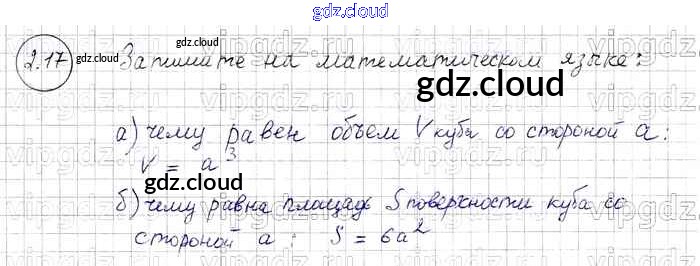 gdz.cloud
2.17 gdz.cloud Запишите на математическом языке:
gdz.cloud
gdz.cloud
а) чему равен объем V куба со стороной а:
V = a³
gdz.cloud
б) чему равна площадь S поверхности куба со
стороной а : S = 6a²
gdz.cloud